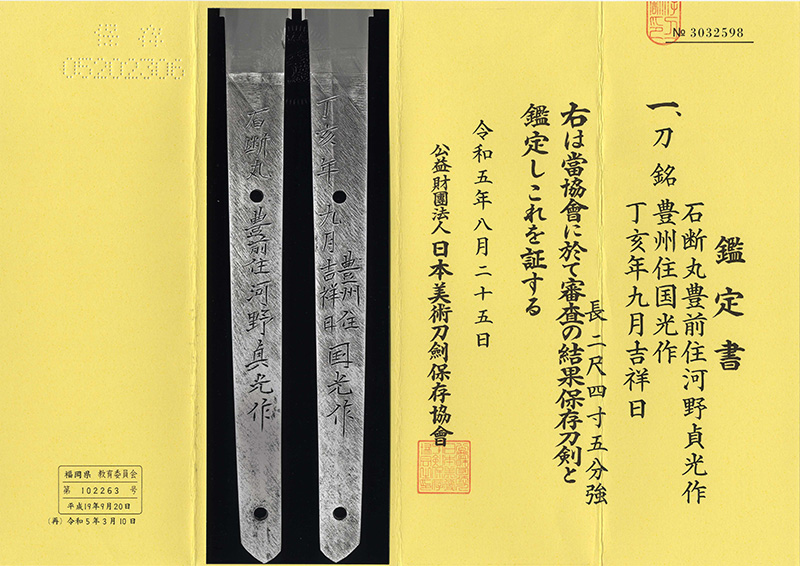 № 3032598
鑑定書
一、刀 銘
石断丸豊前住河野貞光作
豊州住国光作
丁亥年九月吉祥日
長 二尺四寸五分強
右は當協會に於て審査の結果保存刀剣と
鑑定しこれを証する
令和五年八月二十五日
公益財團法人 日本美術刀劍保存協會
丁亥年九月吉祥日
豊州住国光作
石断丸 豊前住河野貞光作
保存
05202306
福岡県 教育委員会
第 102263 号
平成19年9月20日
(再) 令和5年3月10日